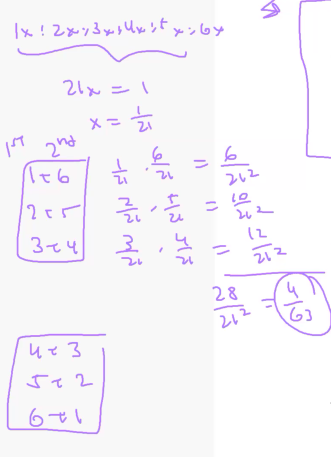 1x : 2x : 3x : 4x : 5x : 6x
21x = 1
x = 1/21
1st 2nd
1 & 6 1/21 · 6/21 = 6/21²
2 & 5 2/21 · 5/21 = 10/21²
3 & 4 3/21 · 4/21 = 12/21²
28/21² = 4/63
4 & 3
5 & 2
6 & 1